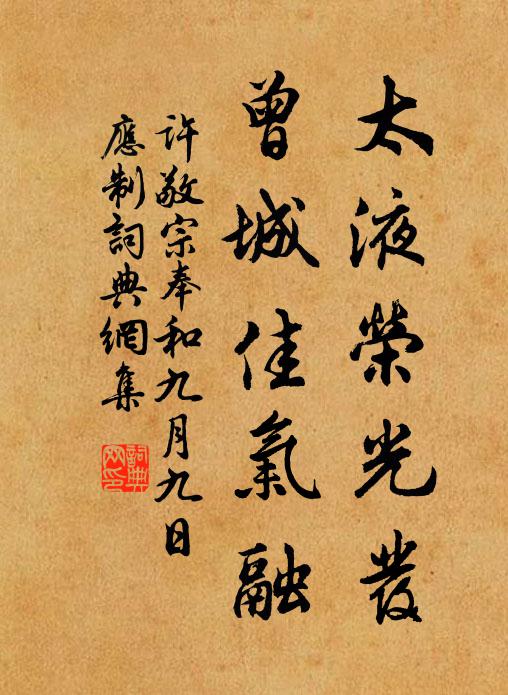 太液榮光發
曾城佳氣融
許敬宗奉和九月九日
應制詞典網集
詞典網印